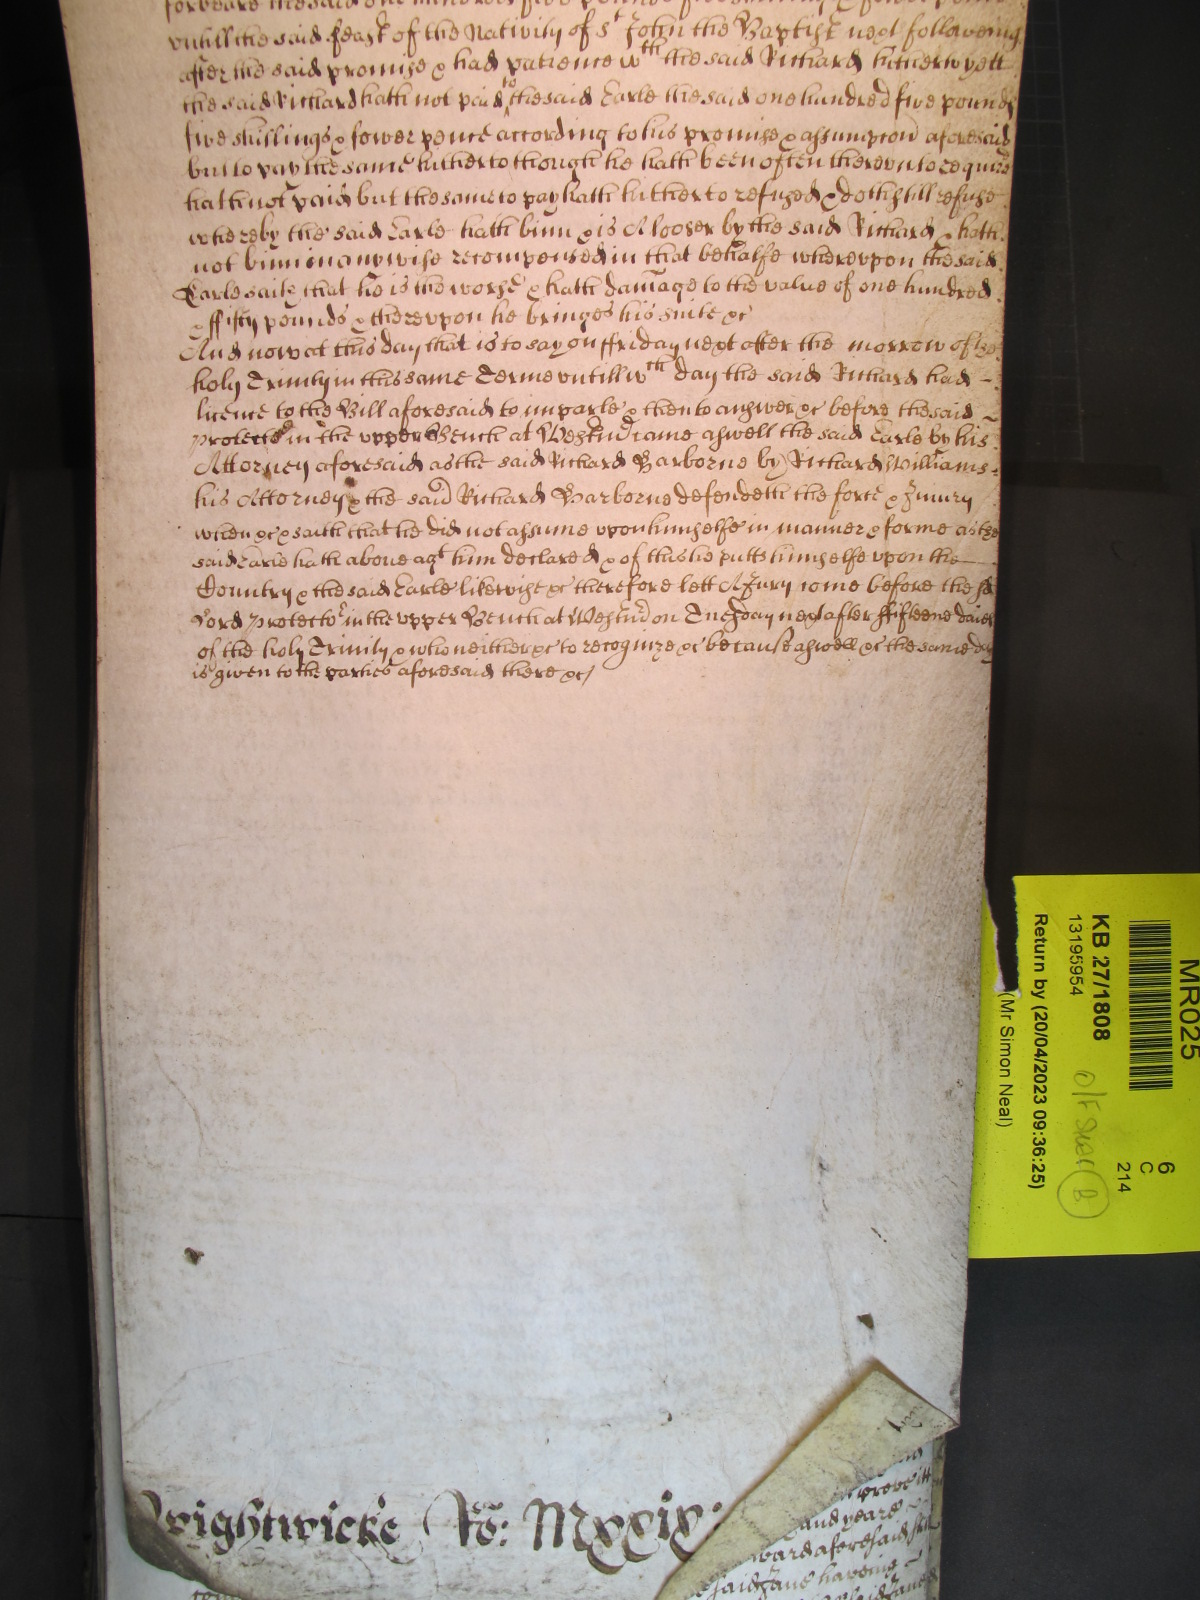 forbeare the said one hundred five pounds five shillings & fower pence
untill the said feast of the Nativity of St John the Baptist next following
after the said promise & had patience wth the said Richard hitherto yett
the said Richard hath not paid to the said Earle the said one hundred five pounds
five shillings & fower pence according to his promise & assumpcon aforesaid
but to pay the same hitherto though he hath been often thereunto required
hath not paid but the same to pay hath hitherto refused & doth still refuse
whereby the said Earle hath binn & is A looser by the said Richard & hath
not binn in anywise recompensed in that behalfe whereupon the said
Earle saith that he is the worse & hath damage to the value of one hundred
& ffifty pounds & thereupon he bringes his suite &c
And now at this day that is to say on ffriday next after the morrow of the
holy Trinity in this same Terme untill wth day the said Richard had
licence to the Bill aforesaid to imparle & then to answer &c before the said
Protector in the upper Bench at Westm came aswell the said Earle by his
Attorney aforesaid as the said Richard Barborne by Richard Williams
his Attorney & the said Richard Barborne defendeth the force & Injury
when &c & saith that he did not assume upon himselfe in manner & forme as the
said Earle hath above agt him declared & of this he putts himselfe upon the
Country & the said Earle likewise &c therefore lett A Jury come before the sd
Lord Protector in the upper Bench at Westm on Tuesday next after ffifteene daies
of the holy Trinity & who neither &c to recognize &c because aswell &c the same day
is given to the parties aforesaid there &c
Brightwicke Ro: Mxxix:
and yeares
ward aforesaid
said Jane haveing
MR025
6
C
214
KB 27/1808
13195954
O/F Shelf B
Return by (20/04/2023 09:36:25)
(Mr Simon Neal)